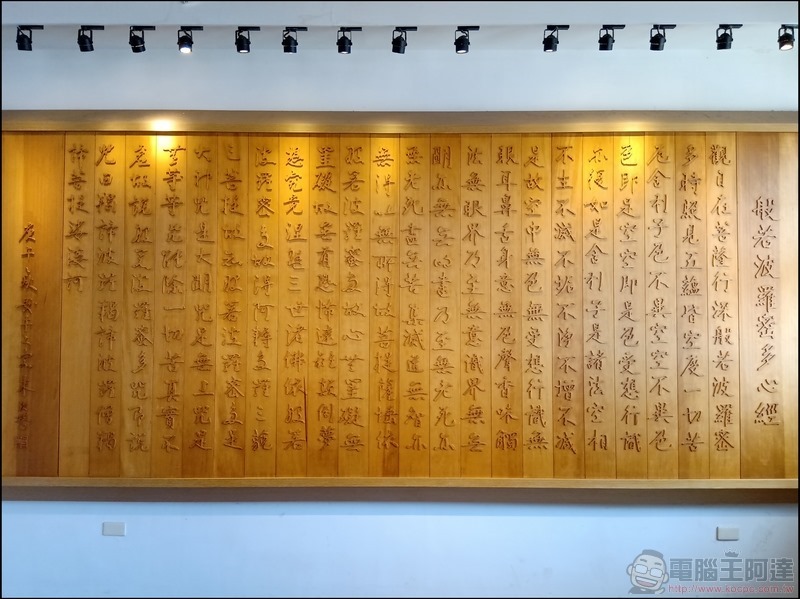 般若波羅蜜多心經
觀自在菩薩行深般若波羅蜜
多時照見五蘊皆空度一切苦
厄舍利子色不異空空不異色
色即是空空即是色受想行識
亦復如是舍利子是諸法空相
不生不滅不垢不淨不增不減
是故空中無色無受想行識無
眼耳鼻舌身意無色聲香味觸
法無眼界乃至無意識界無無
明亦無無明盡乃至無老死亦
無老死盡無苦集滅道無智亦
無得以無所得故菩提薩埵依
般若波羅蜜多故心無罣礙無
罣礙故無有恐怖遠離顛倒夢
想究竟涅槃三世諸佛依般若
波羅蜜多故得阿耨多羅三藐
三菩提故知般若波羅蜜多是
大神咒是大明咒是無上咒是
無等等咒能除一切苦真實不
虛故說般若波羅蜜多咒即說
咒曰揭諦波羅揭諦波羅僧揭
諦菩提娑婆訶
庚午
電腦王阿達
http://www.kocpc.com.tw